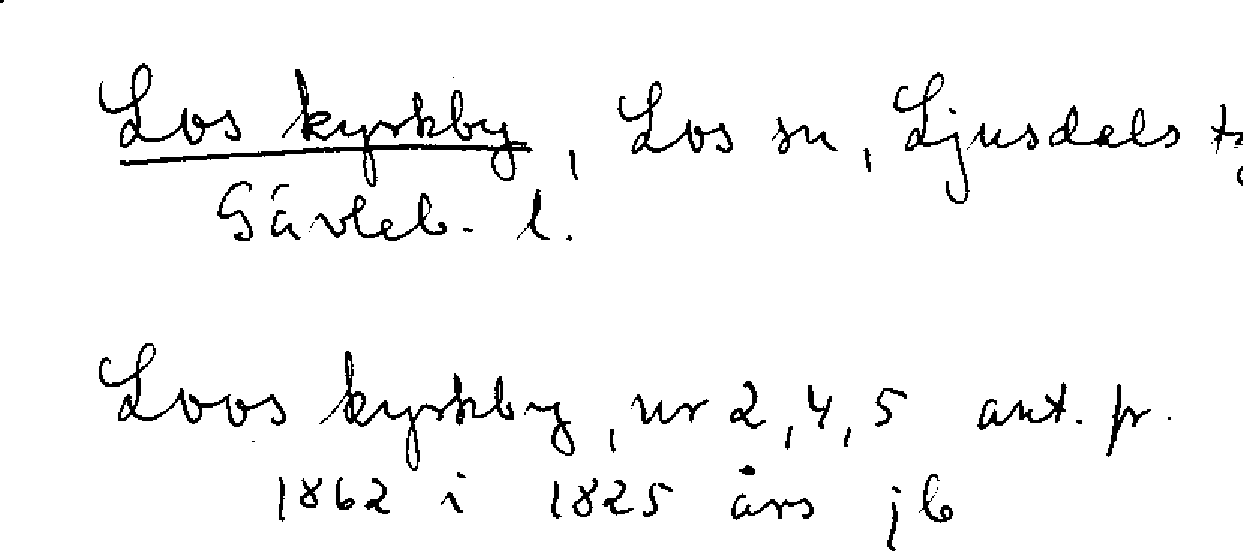 Los kyrkby, Los sn, Ljusdals
Gävleb. l.
Loos kyrkby, nr 2, 4, 5 ant. pr.
1862 i 1825 års jb